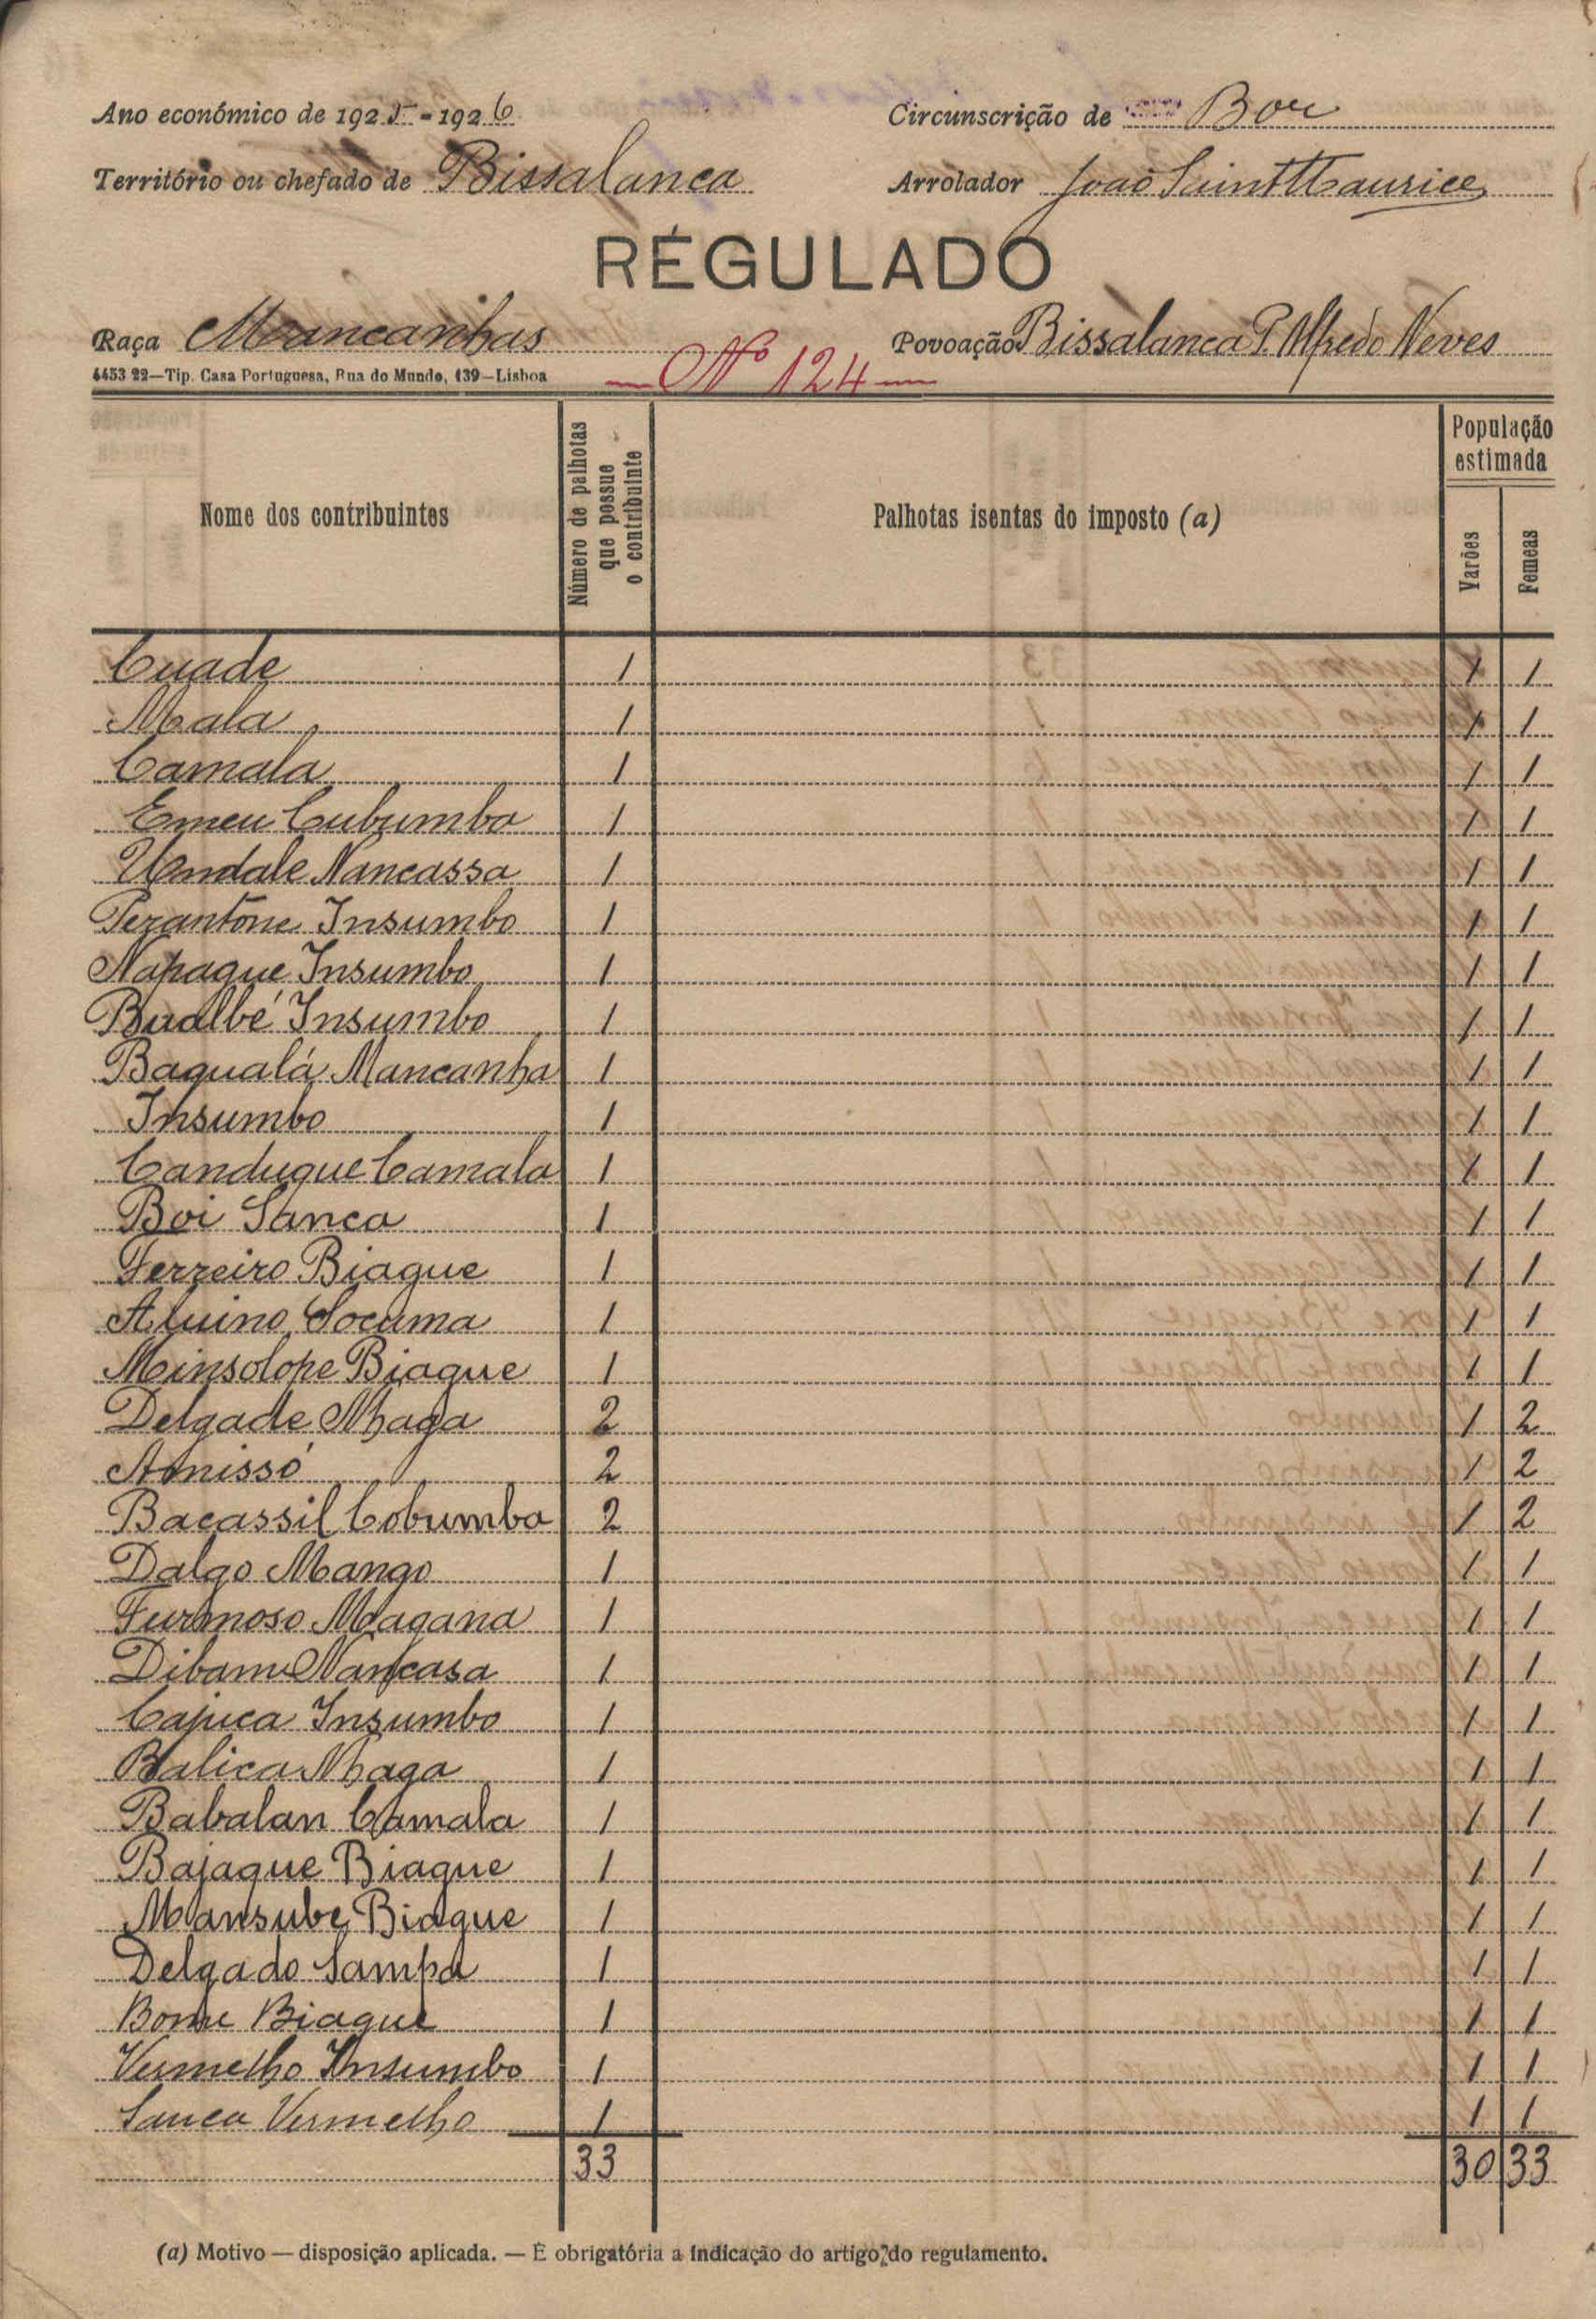 Ano económico de 1925-1926 Circunscrição de Bor
Território ou chefado de Bissalanca Arrolador João Saint Maurice
RÉGULADO
Raça Mancanhas Povoação Bissalanca P. Alfredo Neves
4453 22—Tip. Casa Portuguesa, Rua do Mundo, 139—Lisboa — Nº 124 —
Nome dos contribuintes
Número de palhotas que possue o contribuinte
Palhotas isentas do imposto (a)
População estimada
Varões
Femeas
Cuade 1 1 1
Mala 1 1 1
Camala 1 1 1
Emeu Cubumba 1 1 1
Undale Nancassa 1 1 1
Perantone Insumbo 1 1 1
Napaque Insumbo 1 1 1
Bualbé Insumbo 1 1 1
Baqualá Mancanha 1 1 1
Insumbo 1 1 1
Canduque Camala 1 1 1
Boi Sanca 1 1 1
Ferreiro Biague 1 1 1
Aluino Socuma 1 1 1
Minsolope Biague 1 1 1
Delgade Nhaga 2 1 2
Amissó 2 1 2
Bacassil Cobumba 2 1 2
Dalgo Mango 1 1 1
Furmoso Magana 1 1 1
Dibame Nancasa 1 1 1
Cajuca Insumbo 1 1 1
Balica Nhaga 1 1 1
Babalan Camala 1 1 1
Bajaque Biague 1 1 1
Mansube Biague 1 1 1
Delgado Sampa 1 1 1
Bome Biague 1 1 1
Vermelho Insumbo 1 1 1
Sanca Vermelho 1 1 1
33 30 33
(a) Motivo — disposição aplicada. — É obrigatória a indicação do artigo do regulamento.